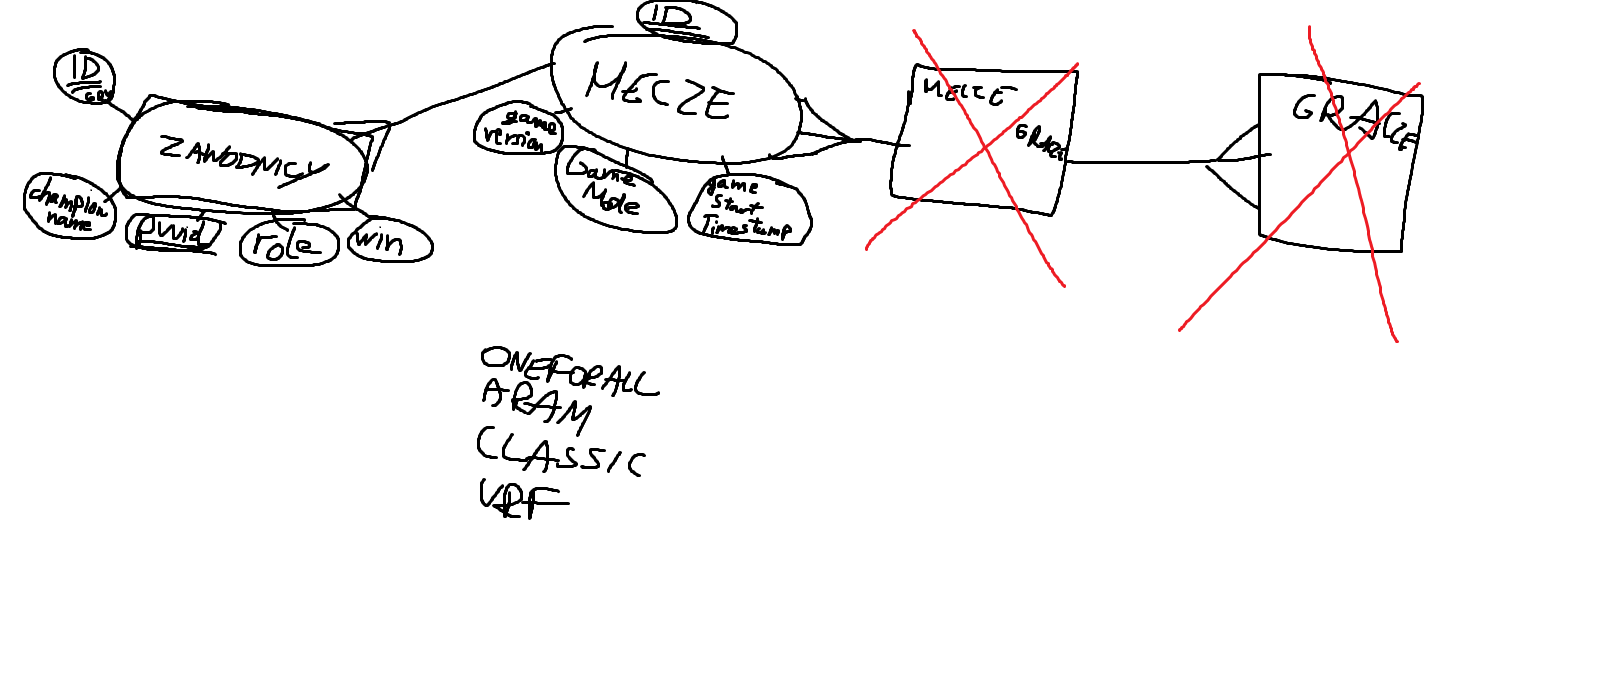 ID
GRY
ZAWODNICY
champion
name
puuid
role
win
ID
MECZE
game
version
Game
Mode
game
Start
Timestamp
MECZE
GRACZE
GRACZE
ONEFORALL
ARAM
CLASSIC
URF